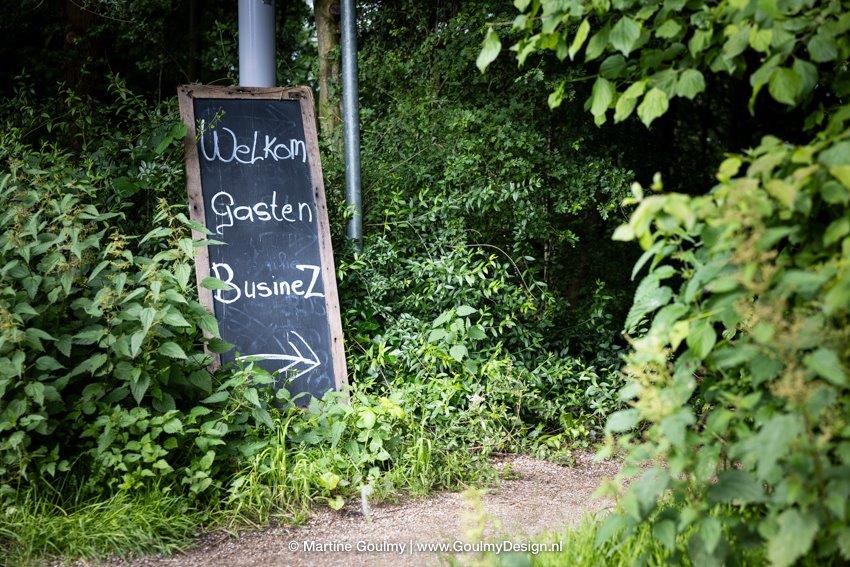 Welkom
Gasten
BusineZ
© Martine Goulmy | www.GoulmyDesign.nl